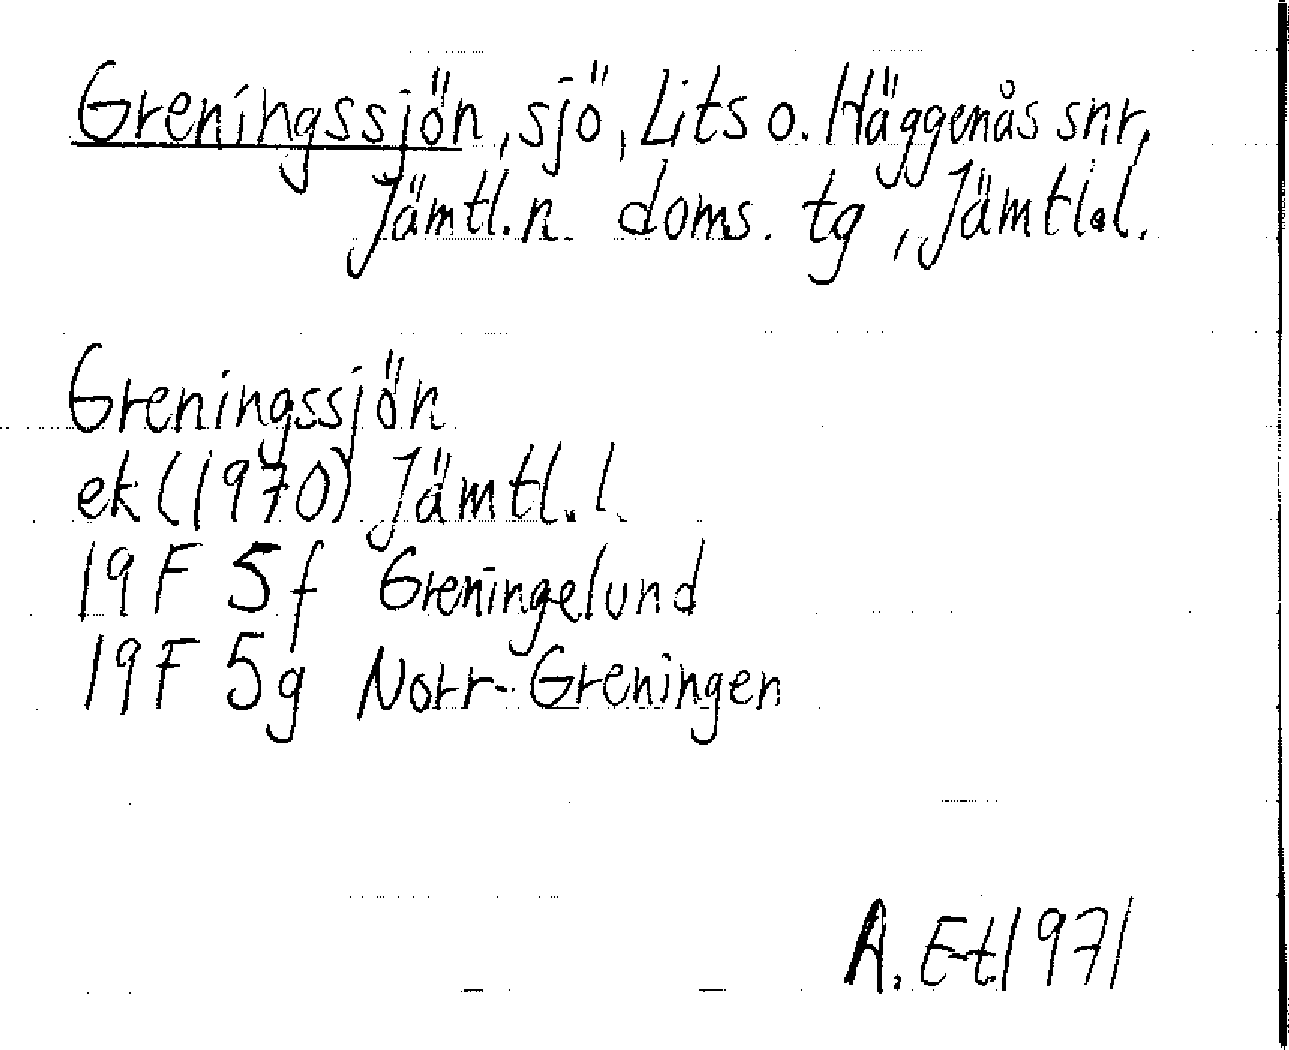 Greningssjön, sjö, Lits o. Häggenås snr,
Jämtl.n. doms. tg, Jämtl.l.
Greningssjön
ek (1970) Jämtl. l.
19F 5f Greningelund
19F 5g Norr-Greningen
A. E-t 1971